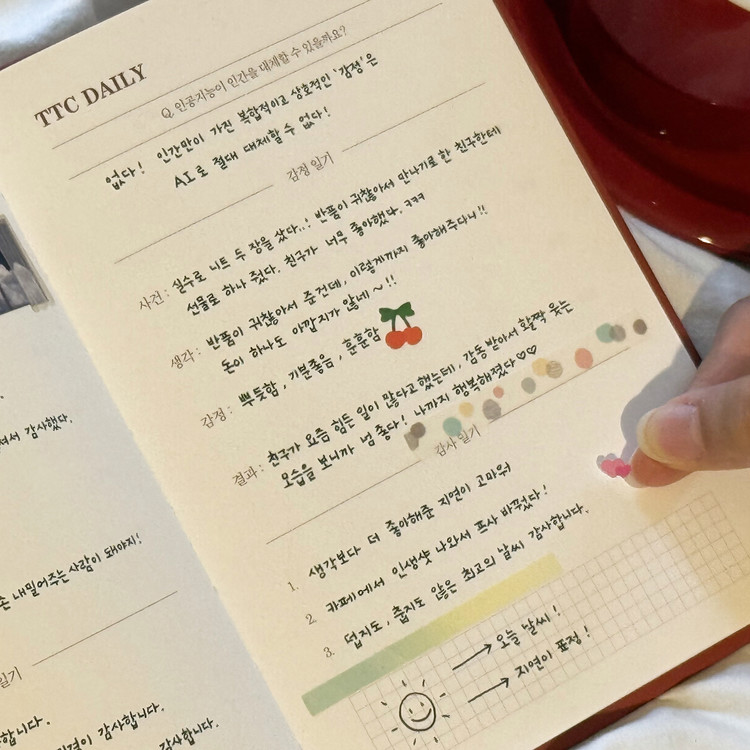 TTC DAILY
Q. 인공지능이 인간을 대체할 수 있을까요?
없다! 인간만이 가진 복합적이고 상호적인 '감정'은
AI로 절대 대체할 수 없다!
감정 일기
사건 : 실수로 니트 두 장을 샀다..! 반품이 귀찮아서 만나기로 한 친구한테
선물로 하나 줬다. 친구가 너무 좋아했다. ㅋㅋㅋ
생각 : 반품이 귀찮아서 준건데, 이렇게까지 좋아해주다니!!
돈이 하나도 아깝지가 않네~!!
감정 : 뿌듯함, 기분좋음, 훈훈함
결과 : 친구가 요즘 힘든 일이 많다고 했는데, 감동받아서 활짝 웃는
모습을 보니까 넘 좋다! 나까지 행복해졌다♡♡
감사 일기
1. 생각보다 더 좋아해준 지연이 고마워
2. 카페에서 인생샷 나와서 프사 바꿨다!
3. 덥지도, 춥지도 않은 최고의 날씨 감사합니다.
→ 오늘 날씨!
→ 지연이 표정!
감사했다.
내밀어주는 사람이 돼야지!
일기
감사합니다.
감사합니다.